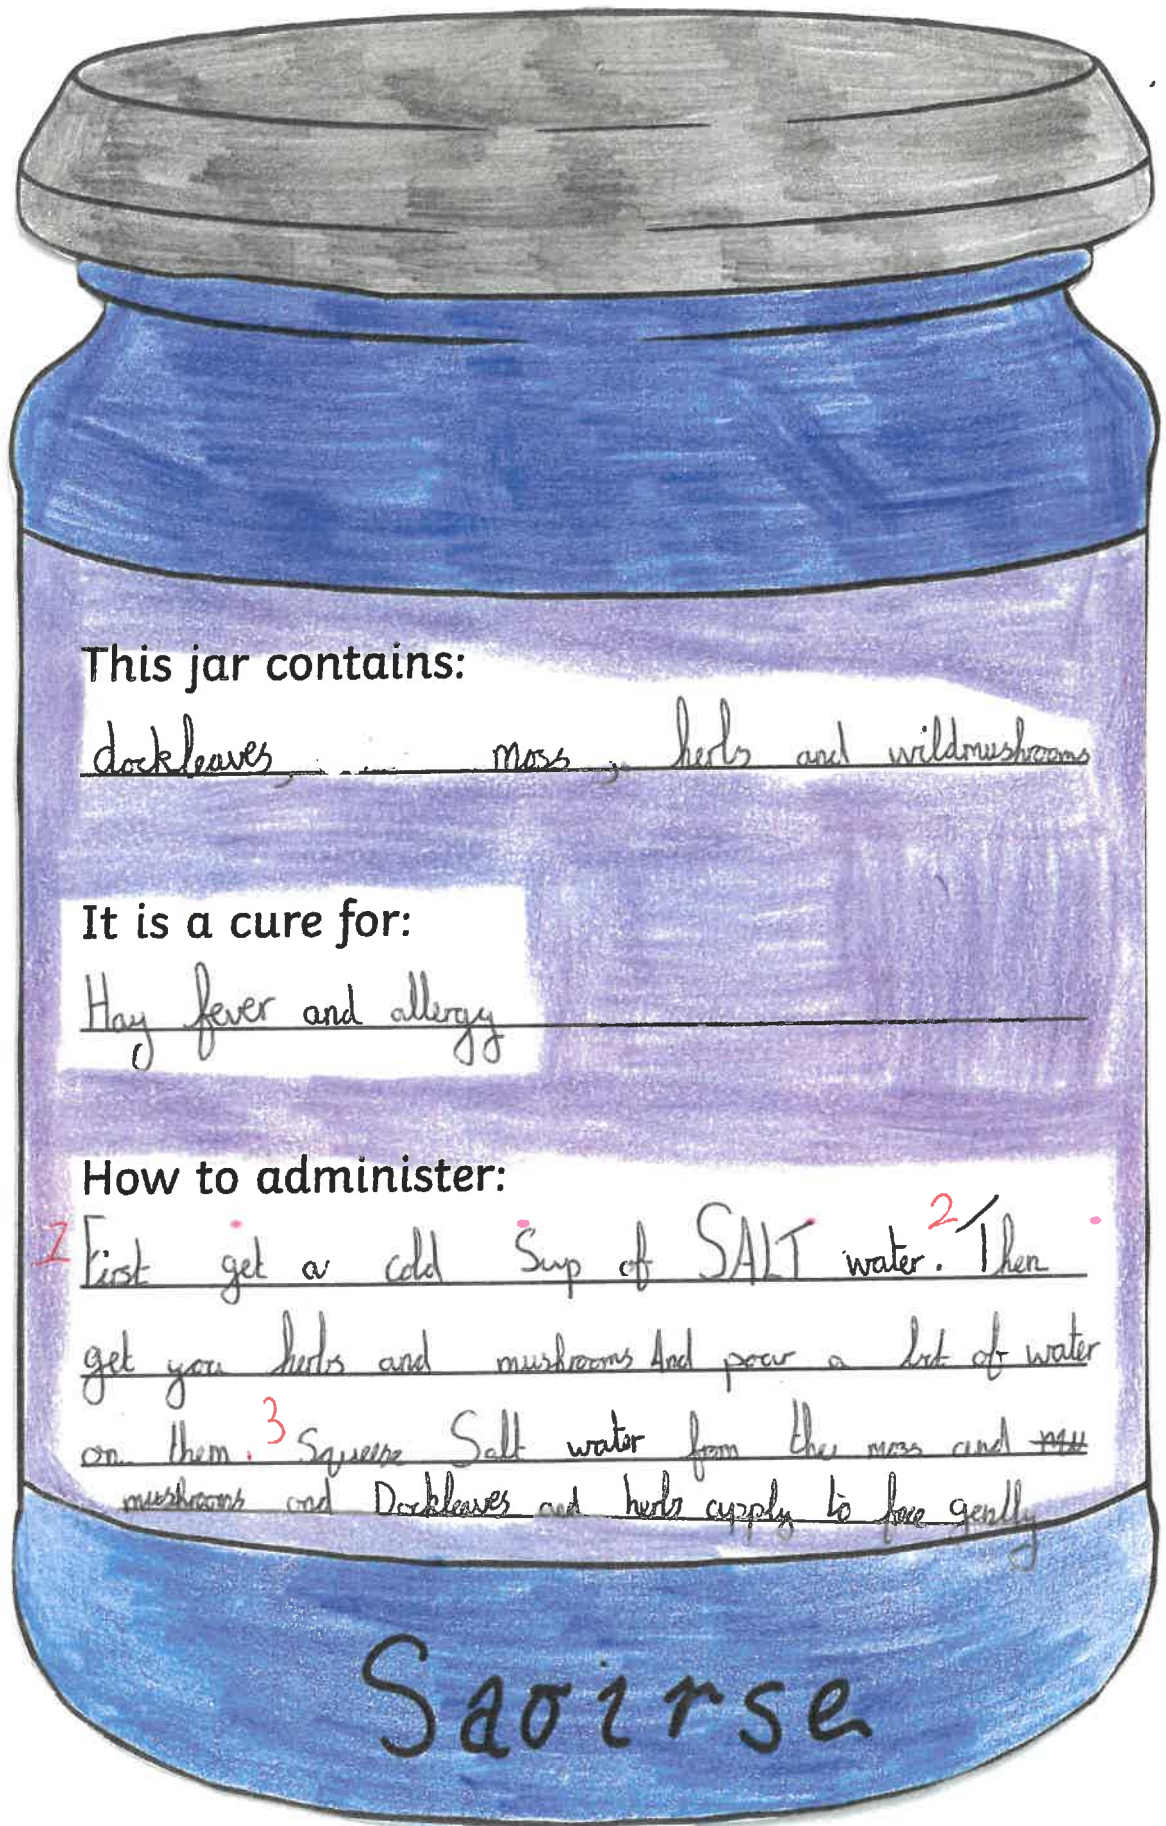 This jar contains:
dockleaves, moss, herbs and wildmushrooms
It is a cure for:
Hay fever and allergy
How to administer:
1 First get a cold Sup of SALT water. 2 Then
get you herbs and mushrooms And pour a bit of water
on them. 3 Squeeze Salt water from the moss and mu
mushrooms and Dockleaves and herbs apply to face gently
Saoirse